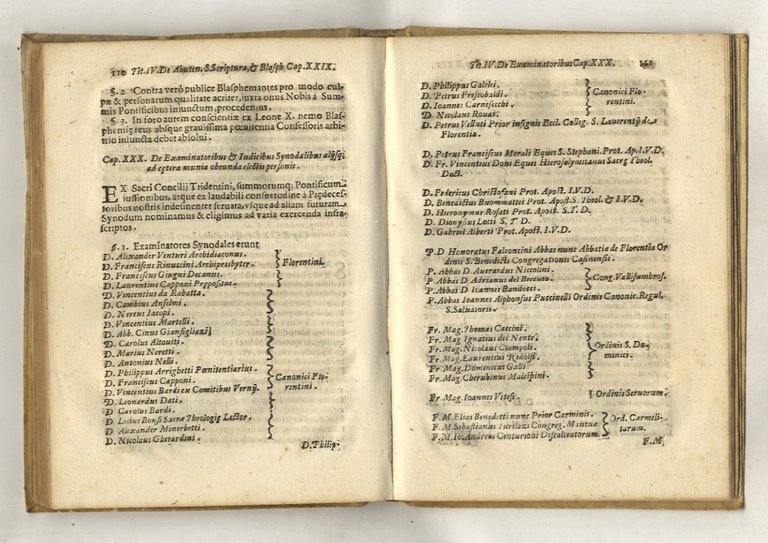 120 Tit. IV. De Abuten. S. Scriptura, & Blasph. Cap. XXIX.
§. 2 Contra verò publice Blasphemantes pro modo cul-
pæ & personarum qualitate acriter, iuxta onus Nobis a Sum-
mis Pontificibus iniunctum, procedemus.
§. 3. In foro autem conscientiæ ex Leone X. nemo Blas-
phemię reus absque grauissima pœnitentia Confessoris arbi-
trio iniuncta debet absolui.
Cap. XXX. De Examinatoribus & Iudicibus Synodalibus alijsq;
ad cętera munia obeunda electis personis.
EX Sacri Concilij Tridentini, summorumq; Pontificum
iussionibus, atque ex laudabili consuetudine à Prædeces-
soribus nostris indesinenter seruata, vsque ad aliam futuram
Synodum nominamus & eligimus ad varia exercenda infra-
scriptos.
§. 1. Examinatores Synodales erunt
D. Alexander Venturi Archidiaconus.
D. Franciscus Rinuccini Archipresbyter.
D. Franciscus Giugni Decanus.
D. Laurentius Capponi Prępositus.
Florentini.
D. Vincentius da Rabatta.
D. Cambius Anselmi.
D. Nereus Iacopi.
D. Vincentius Martelli.
D. Abb. Cinus Gianfigliazzi
D. Carolus Altouiti.
D. Marius Neretti.
D. Antonius Nelli.
D. Philippus Arrighetti Pœnitentiarius.
D. Franciscus Capponi.
D. Vincentius Bardi ex Comitibus Vernij.
D. Leonardus Dati.
D. Carolus Bardi.
D. Lelius Bonsi Sacræ Theologię Lector.
D. Alexander Minerbetti.
D. Nicolaus Gherardini.
Canonici Flo-
rentini.
D. Philip-
Tit. IV. De Examinatoribus Cap. XXX. 121
D. Philippus Galilei.
D. Petrus Frescobaldi.
D. Ioannes Carnesecchi.
D. Nicolaus Rouai.
Canonici Flo-
rentini.
D. Petrus Velluti Prior insignis Eccl. Colleg. S. Laurentij de
Florentia.
D. Petrus Franciscus Morali Eques S. Stephani. Prot. Ap. I.V.D.
D. Fr. Vincentius Doni Eques Hierosolymitanus Sacrę Theol.
Doct.
D. Federicus Christofani Prot. Apost. I.V.D.
D. Benedictus Buommattei Prot. Apost. S. Theol. & I.V.D.
D. Hieronymus Rosati Prot. Apost. S.T.D.
D. Dionysius Lotti S. T. D.
D. Gabriel Alberti Prot. Apost. I.V.D.
P. D Honoratus Falconcini Abbas nunc Abbatiæ de Florentia Or
dinis S. Benedicti Congregationis Casinensis.
P. Abbas D. Auerardus Niccolini.
P. Abbas D. Adrianus del Beccuto.
P. Abbas D Ioannes Bandotti
Cong. Vallisumbros.
P. Abbas Ioannes Alphonsus Puccinelli Ordinis Canonic. Regul.
S. Saluatoris.
Fr. Mag. Thomas Caccini.
Fr. Mag Ignatius del Nente.
Fr. Mag. Nicolaus Ciampoli.
Fr. Mag. Laurentius Ridolfi.
Fr. Mag. Dominicus Galli
Fr. Mag. Cherubinus Malespini.
Ordinis S. Do-
minici.
Fr. Mag. Ioannes Vitesi. Ordinis Seruorum.
F. M. Ælias Benedetti nunc Prior Carminis.
F. M. Sebastianus Turilazi Congreg. Mantuæ
F. M. Io. Andreas Centurioni Discalceatorum.
Ord. Carmeli-
tarum.
F. M.